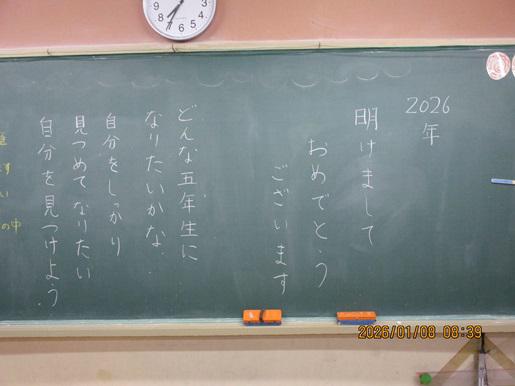 2026
年
明けまして
おめでとう
ございます
どんな五年生に
なりたいかな
自分をしっかり
見つめてなりたい
自分を見つけよう.
の中
2026/01/08 08:39